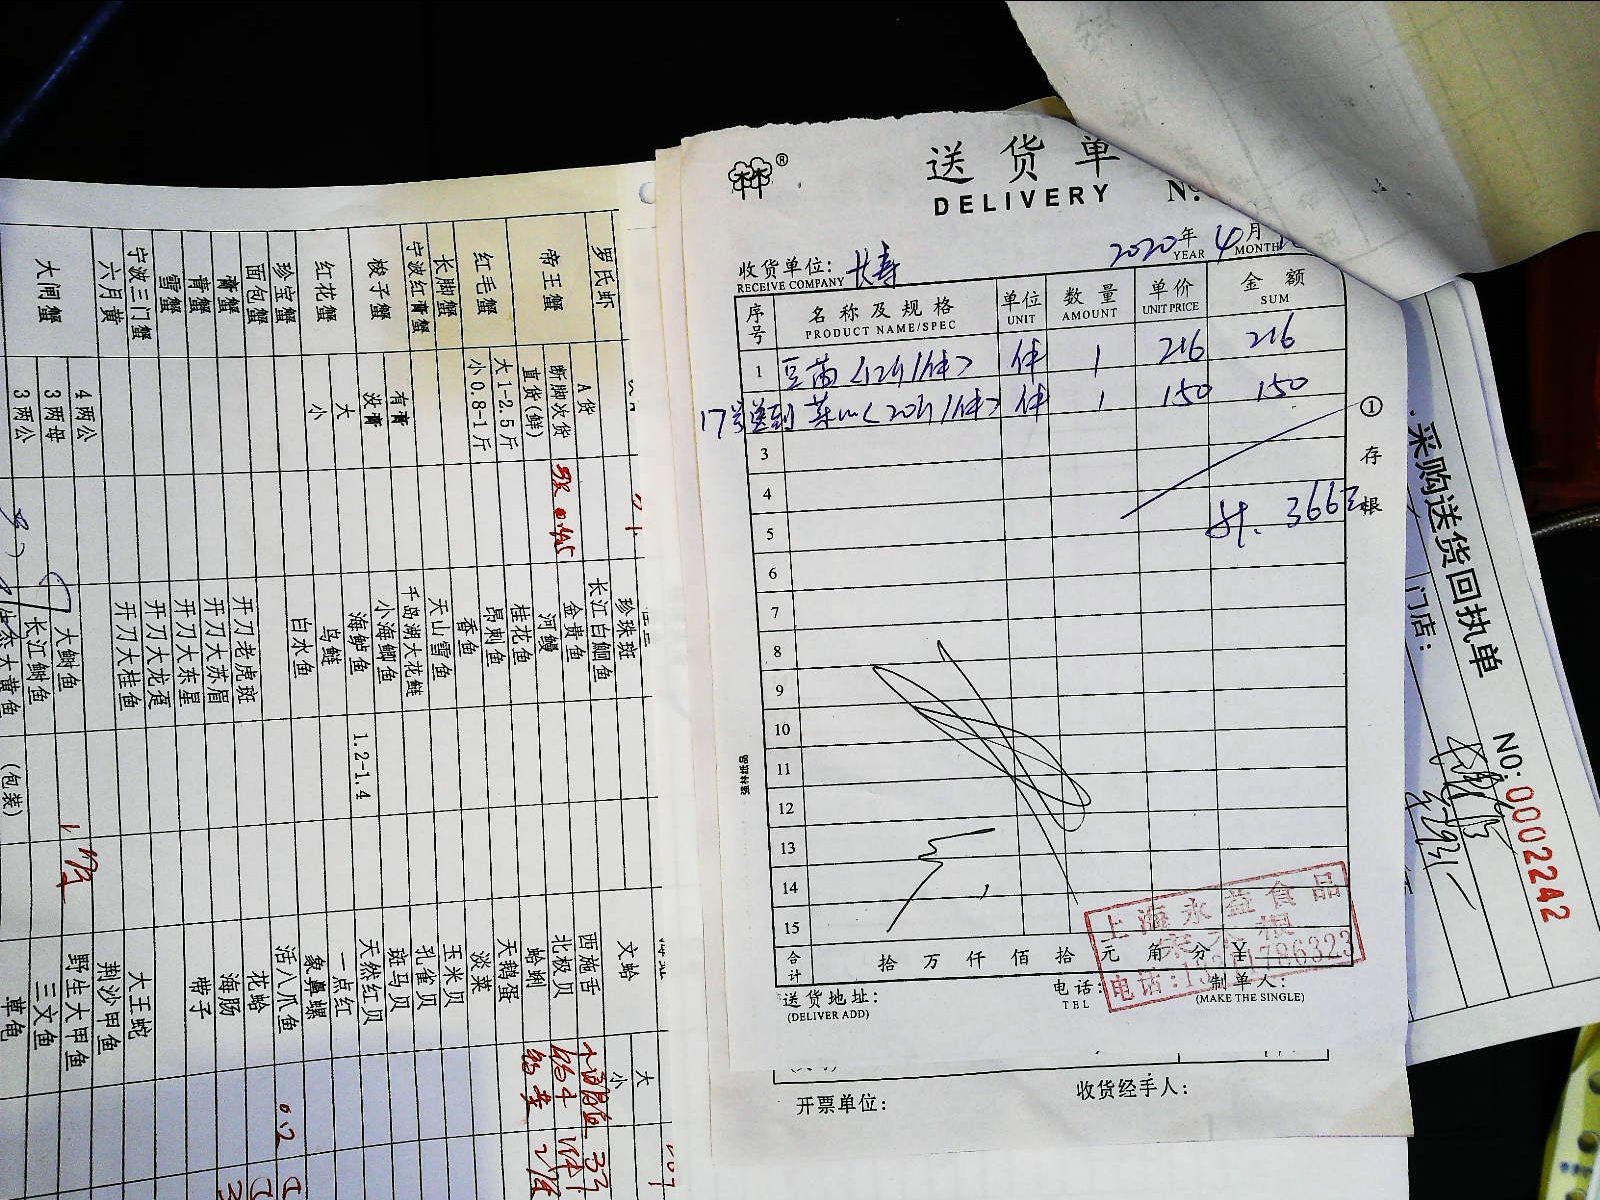 送货单
DELIVERY No.
2020年4月
YEAR MONTH
收货单位: 长寿
RECEIVE COMPANY
序号 名称及规格 单位 数量 单价 金额
PRODUCT NAME/SPEC UNIT AMOUNT UNIT PRICE SUM
1 豆苗(12斤/件) 件 1 216 216
17号送到 菜心(20斤/件) 件 1 150 150
3
4
5 计. 366元
6
7
8
9
10
11
12
13
14
15
合计 拾 万 仟 佰 拾 元 角 分 ¥
送货地址: 电话: 制单人:
(DELIVER ADD) TEL (MAKE THE SINGLE)
① 存根
上海永益食品
电话:
开票单位: 收货经手人:
采购送货回执单
门店:
NO:0002242
罗氏虾
A货
帝王蟹
断脚次货
直货(鲜)
红毛蟹
大1-2.5斤
小0.8-1斤
长脚蟹
宁波红膏蟹
梭子蟹
有膏
没膏
红花蟹
大
小
珍宝蟹
面包蟹
膏蟹
青蟹
雪蟹
宁波三门蟹
六月黄
大闸蟹
4两公
3两母
3两公
珍珠斑
长江白鮰鱼
金贵鱼
河鳗
桂花鱼
昂刺鱼
香鱼
天山雪鱼
千岛湖大花鲢
小海鲫鱼
海鲈鱼 1.2-1.4
乌鲢
白水鱼
开刀老虎斑
开刀大苏眉
开刀大东星
开刀大龙趸
开刀大桂鱼
大鲥鱼
长江鲥鱼
生态大黄鱼 (包装)
文蛤
大
小
西施舌
北极贝
蛤蜊
天鹅蛋
淡菜
玉米贝
孔雀贝
斑马贝
天然红贝
一点红
象鼻螺
活八爪鱼 0.2
花蛤
海肠
带子
大王蛇
荆沙甲鱼
野生大甲鱼
三文鱼
草龟